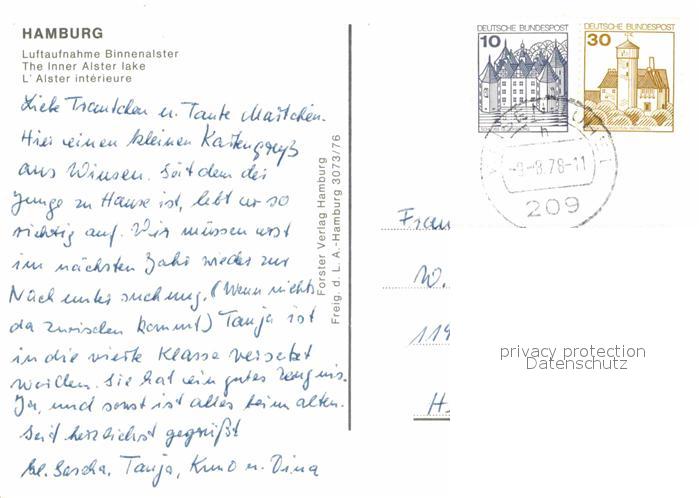 HAMBURG
Luftaufnahme Binnenalster
The Inner Alster lake
L' Alster intérieure
Liebe Trautchen u. Tante Martchen.
Hier einen kleinen Kartengruß
aus Winsen. Seit dem der
Junge zu Hause ist, lebt er so
richtig auf. Wir müssen erst
im nächsten Jahr wieder zur
Nachuntersuchung. (Wenn nichts
da zwischen kommt) Tanja ist
in die vierte Klasse versetzt
worden. Sie hat ein gutes Zeugnis.
Ja, und sonst ist alles beim alten.
Seid herzlichst gegrüßt
Sascha, Tanja, Kuno u. Dina
Forster Verlag Hamburg
Freig. d. L. A.-Hamburg 3073/76
DEUTSCHE BUNDESPOST
10
DEUTSCHE BUNDESPOST
30
h
-9-8.78-11
209
W.
119
privacy protection
Datenschutz